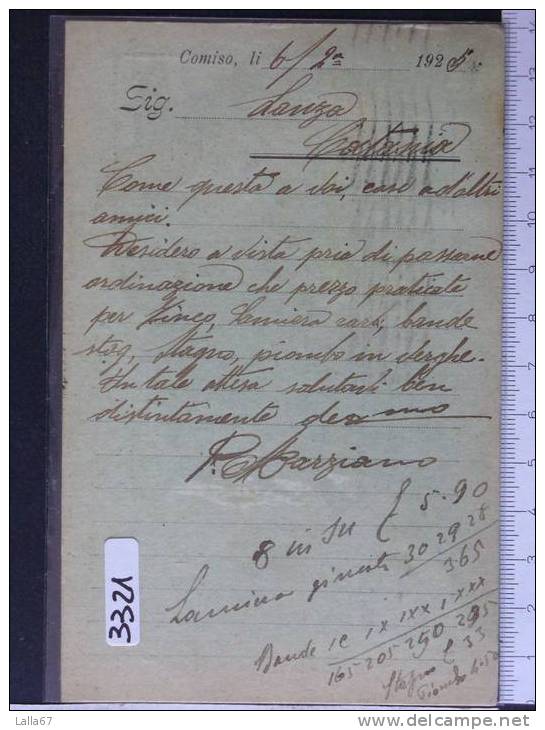 Comiso, li 6/2a 1925
Sig. Lanza
Catania
Come questa a voi, così ad altri
amici.
Desidero a vista pria di passare
ordinazione che prezzo praticate
per Zinco, lamiera nera, bande
stag, stagno, piombo in verghe.
In tale attesa salutarti ben
distintamente
P. Marziano
8 in su £ 5.90
30 29 28
Lamiera 365
Bande 1C 1X 1XX 1XXX
165 205 250 295
Stagno £ 33
Piombo 4.50
3321
Lalla67
delcampe.net